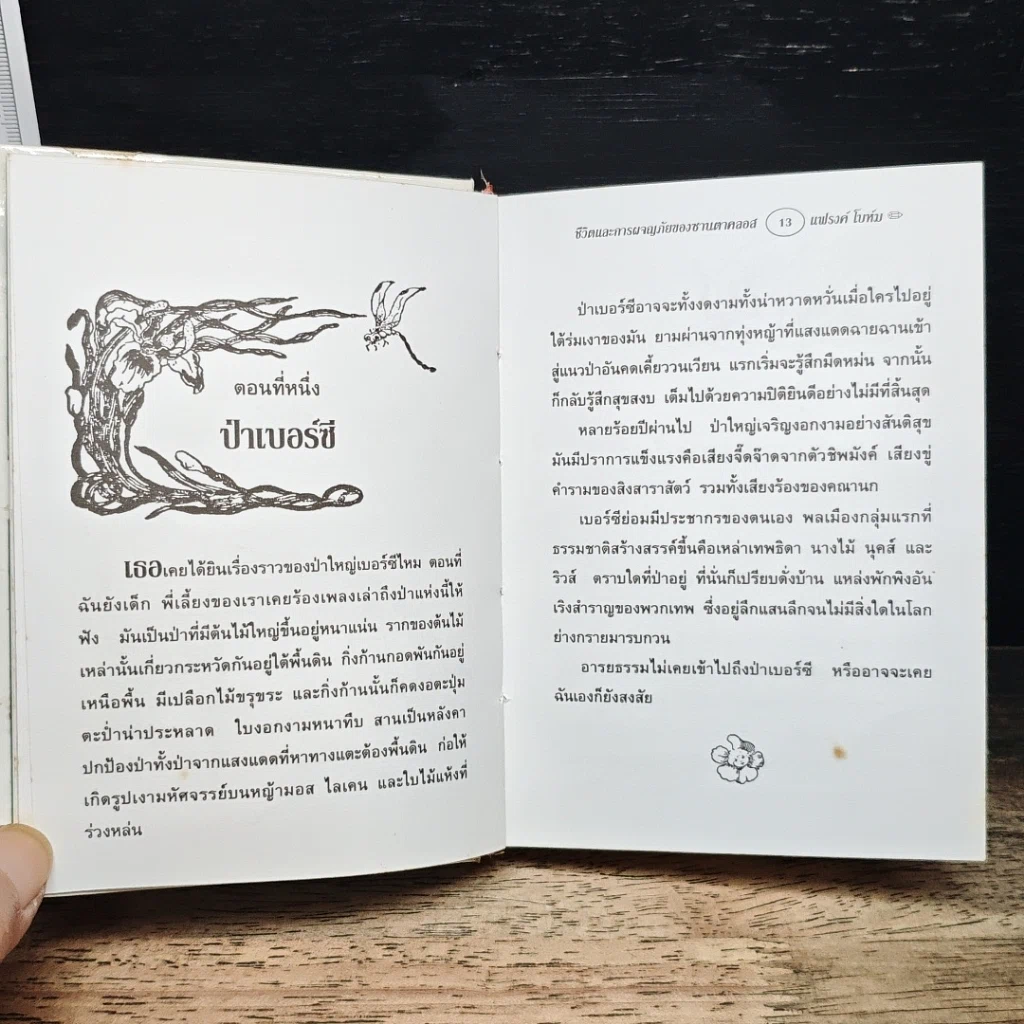 ตอนที่หนึ่ง
ป่าเบอร์ซี
เธอเคยได้ยินเรื่องราวของป่าใหญ่เบอร์ซีไหม ตอนที่
ฉันยังเด็ก พี่เลี้ยงของเราเคยร้องเพลงเล่าถึงป่าแห่งนี้ให้
ฟัง มันเป็นป่าที่มีต้นไม้ใหญ่ขึ้นอยู่หนาแน่น รากของต้นไม้
เหล่านั้นเกี่ยวกระหวัดกันอยู่ใต้พื้นดิน กิ่งก้านกอดพันกันอยู่
เหนือพื้น มีเปลือกไม้ขรุขระ และกิ่งก้านนั้นก็คดงอตะปุ่ม
ตะป่ำน่าประหลาด ใบงอกงามหนาทึบ สานเป็นหลังคา
ปกป้องป่าทั้งป่าจากแสงแดดที่หาทางแตะต้องพื้นดิน ก่อให้
เกิดรูปเงามหัศจรรย์บนหญ้ามอส ไลเคน และใบไม้แห้งที่
ร่วงหล่น
ชีวิตและการผจญภัยของซานตาคลอส 13 แฟรงค์ โบห์ม
ป่าเบอร์ซีอาจจะทั้งงดงามทั้งน่าหวาดหวั่นเมื่อใครไปอยู่
ใต้ร่มเงาของมัน ยามผ่านจากทุ่งหญ้าที่แสงแดดฉายฉานเข้า
สู่แนวป่าอันคดเคี้ยววนเวียน แรกเริ่มจะรู้สึกมืดหม่น จากนั้น
ก็กลับรู้สึกสุขสงบ เต็มไปด้วยความปิติยินดีอย่างไม่มีที่สิ้นสุด
หลายร้อยปีผ่านไป ป่าใหญ่เจริญงอกงามอย่างสันติสุข
มันมีปราการแข็งแรงคือเสียงจี๊ดจ๊าดจากตัวชิพมังค์ เสียงขู่
คำรามของสิงสาราสัตว์ รวมทั้งเสียงร้องของคณานก
เบอร์ซีย่อมมีประชากรของตนเอง พลเมืองกลุ่มแรกที่
ธรรมชาติสร้างสรรค์ขึ้นคือเหล่าเทพธิดา นางไม้ นุคส์ และ
ริวส์ ตราบใดที่ป่าอยู่ ที่นั่นก็เปรียบดั่งบ้าน แหล่งพักพิงอัน
เริงสำราญของพวกเทพ ซึ่งอยู่ลึกแสนลึกจนไม่มีสิ่งใดในโลก
ย่างกรายมารบกวน
อารยธรรมไม่เคยเข้าไปถึงป่าเบอร์ซี หรืออาจจะเคย
ฉันเองก็ยังสงสัย